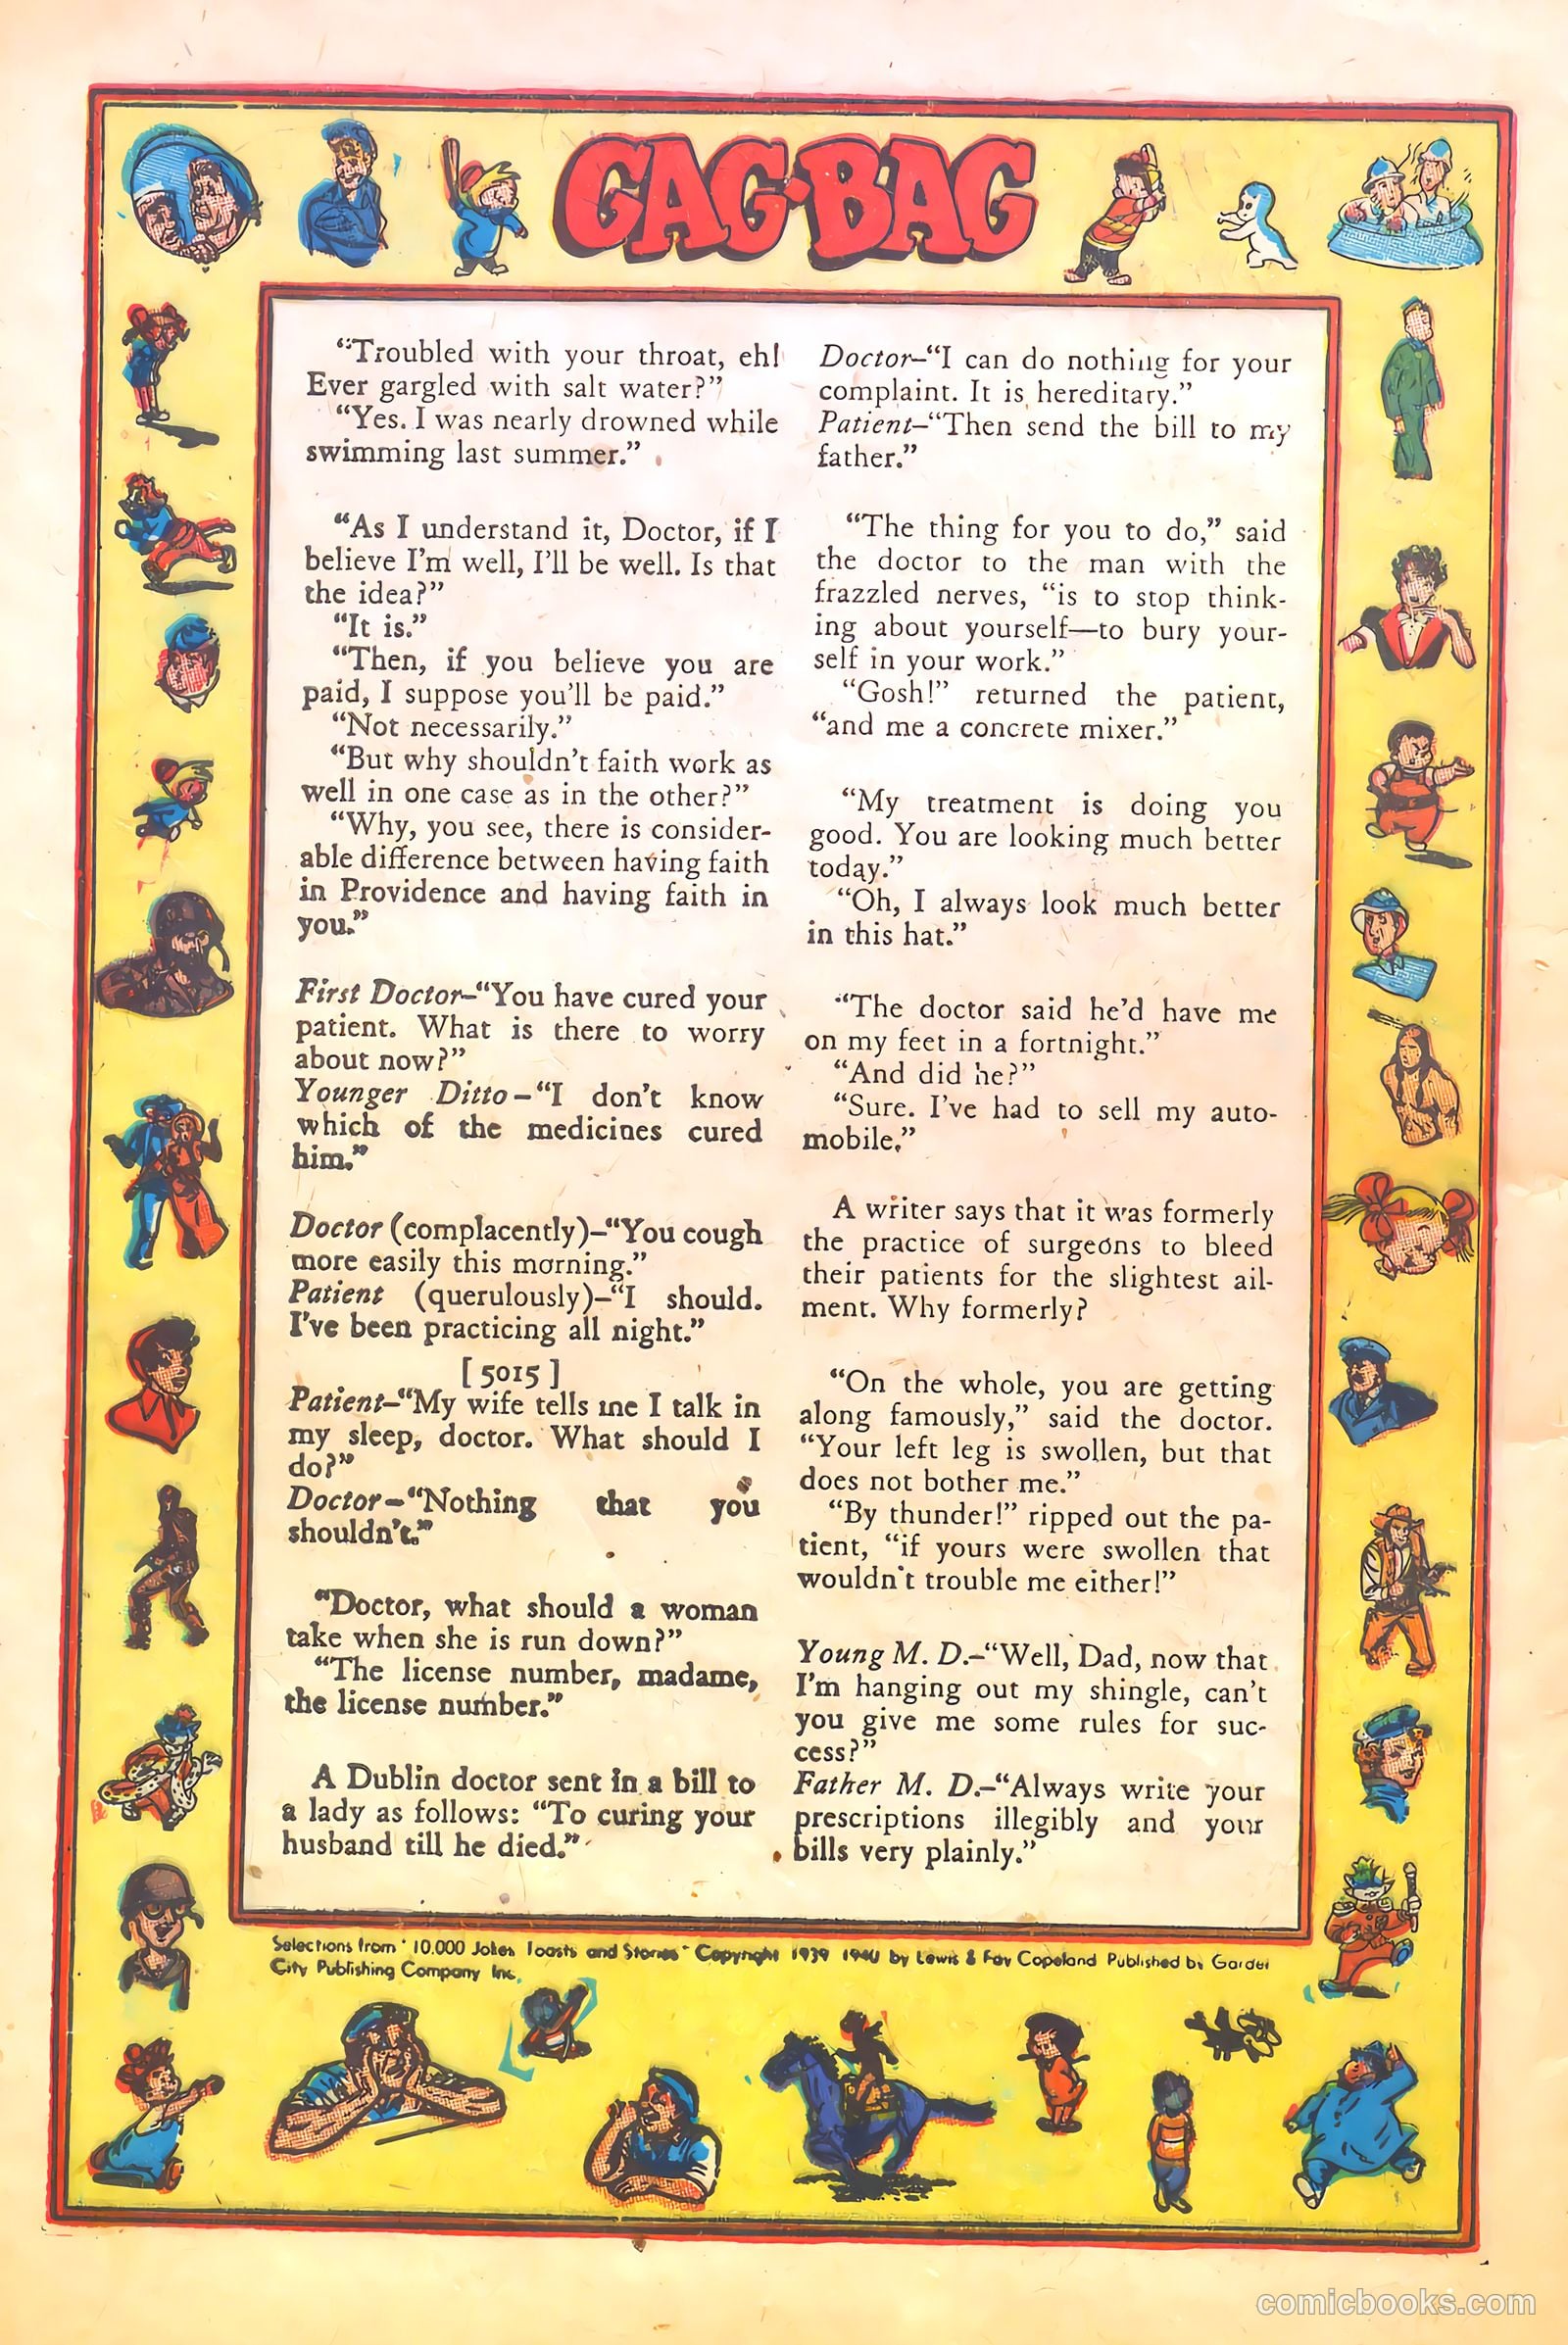 GAG·BAG
“Troubled with your throat, eh!
Ever gargled with salt water?”
“Yes. I was nearly drowned while
swimming last summer.”
“As I understand it, Doctor, if I
believe I’m well, I’ll be well. Is that
the idea?”
“It is.”
“Then, if you believe you are
paid, I suppose you’ll be paid.”
“Not necessarily.”
“But why shouldn’t faith work as
well in one case as in the other?”
“Why, you see, there is consider-
able difference between having faith
in Providence and having faith in
you.”
First Doctor–“You have cured your
patient. What is there to worry
about now?”
Younger Ditto–“I don’t know
which of the medicines cured
him.”
Doctor (complacently)–“You cough
more easily this morning.”
Patient (querulously)–“I should.
I’ve been practicing all night.”
[ 5015 ]
Patient–“My wife tells me I talk in
my sleep, doctor. What should I
do?”
Doctor–“Nothing that you
shouldn’t.”
“Doctor, what should a woman
take when she is run down?”
“The license number, madame,
the license number.”
A Dublin doctor sent in a bill to
a lady as follows: “To curing your
husband till he died.”
Doctor–“I can do nothing for your
complaint. It is hereditary.”
Patient–“Then send the bill to my
father.”
“The thing for you to do,” said
the doctor to the man with the
frazzled nerves, “is to stop think-
ing about yourself—to bury your-
self in your work.”
“Gosh!” returned the patient,
“and me a concrete mixer.”
“My treatment is doing you
good. You are looking much better
today.”
“Oh, I always look much better
in this hat.”
“The doctor said he’d have me
on my feet in a fortnight.”
“And did he?”
“Sure. I’ve had to sell my auto-
mobile.”
A writer says that it was formerly
the practice of surgeons to bleed
their patients for the slightest ail-
ment. Why formerly?
“On the whole, you are getting
along famously,” said the doctor.
“Your left leg is swollen, but that
does not bother me.”
“By thunder!” ripped out the pa-
tient, “if yours were swollen that
wouldn’t trouble me either!”
Young M. D.–“Well, Dad, now that
I’m hanging out my shingle, can’t
you give me some rules for suc-
cess?”
Father M. D.–“Always write your
prescriptions illegibly and your
bills very plainly.”
Selections from "10,000 Jokes Toasts and Stories" Copyright 1939 1940 by Lewis & Fay Copeland Published by Garden
City Publishing Company Inc.
comicbooks.com